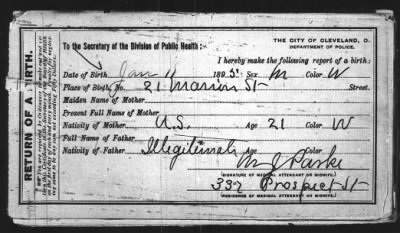 THE CITY OF CLEVELAND, O.
DEPARTMENT OF POLICE.
To the Secretary of the Division of Public Health:
I hereby make the following report of a birth.
Date of Birth Jan 11 1895. Sex M Color W
Place of Birth, No. 21 Marion St Street.
Maiden Name of Mother
Present Full Name of Mother
Nativity of Mother U.S. Age 21 Color W
Full Name of Father
Nativity of Father Illegitimate Age Color
M J Parke
(SIGNATURE OF MEDICAL ATTENDANT OR MIDWIFE.)
332 Prospect St
(RESIDENCE OF MEDICAL ATTENDANT OR MIDWIFE.)
RETURN OF A BIRTH.